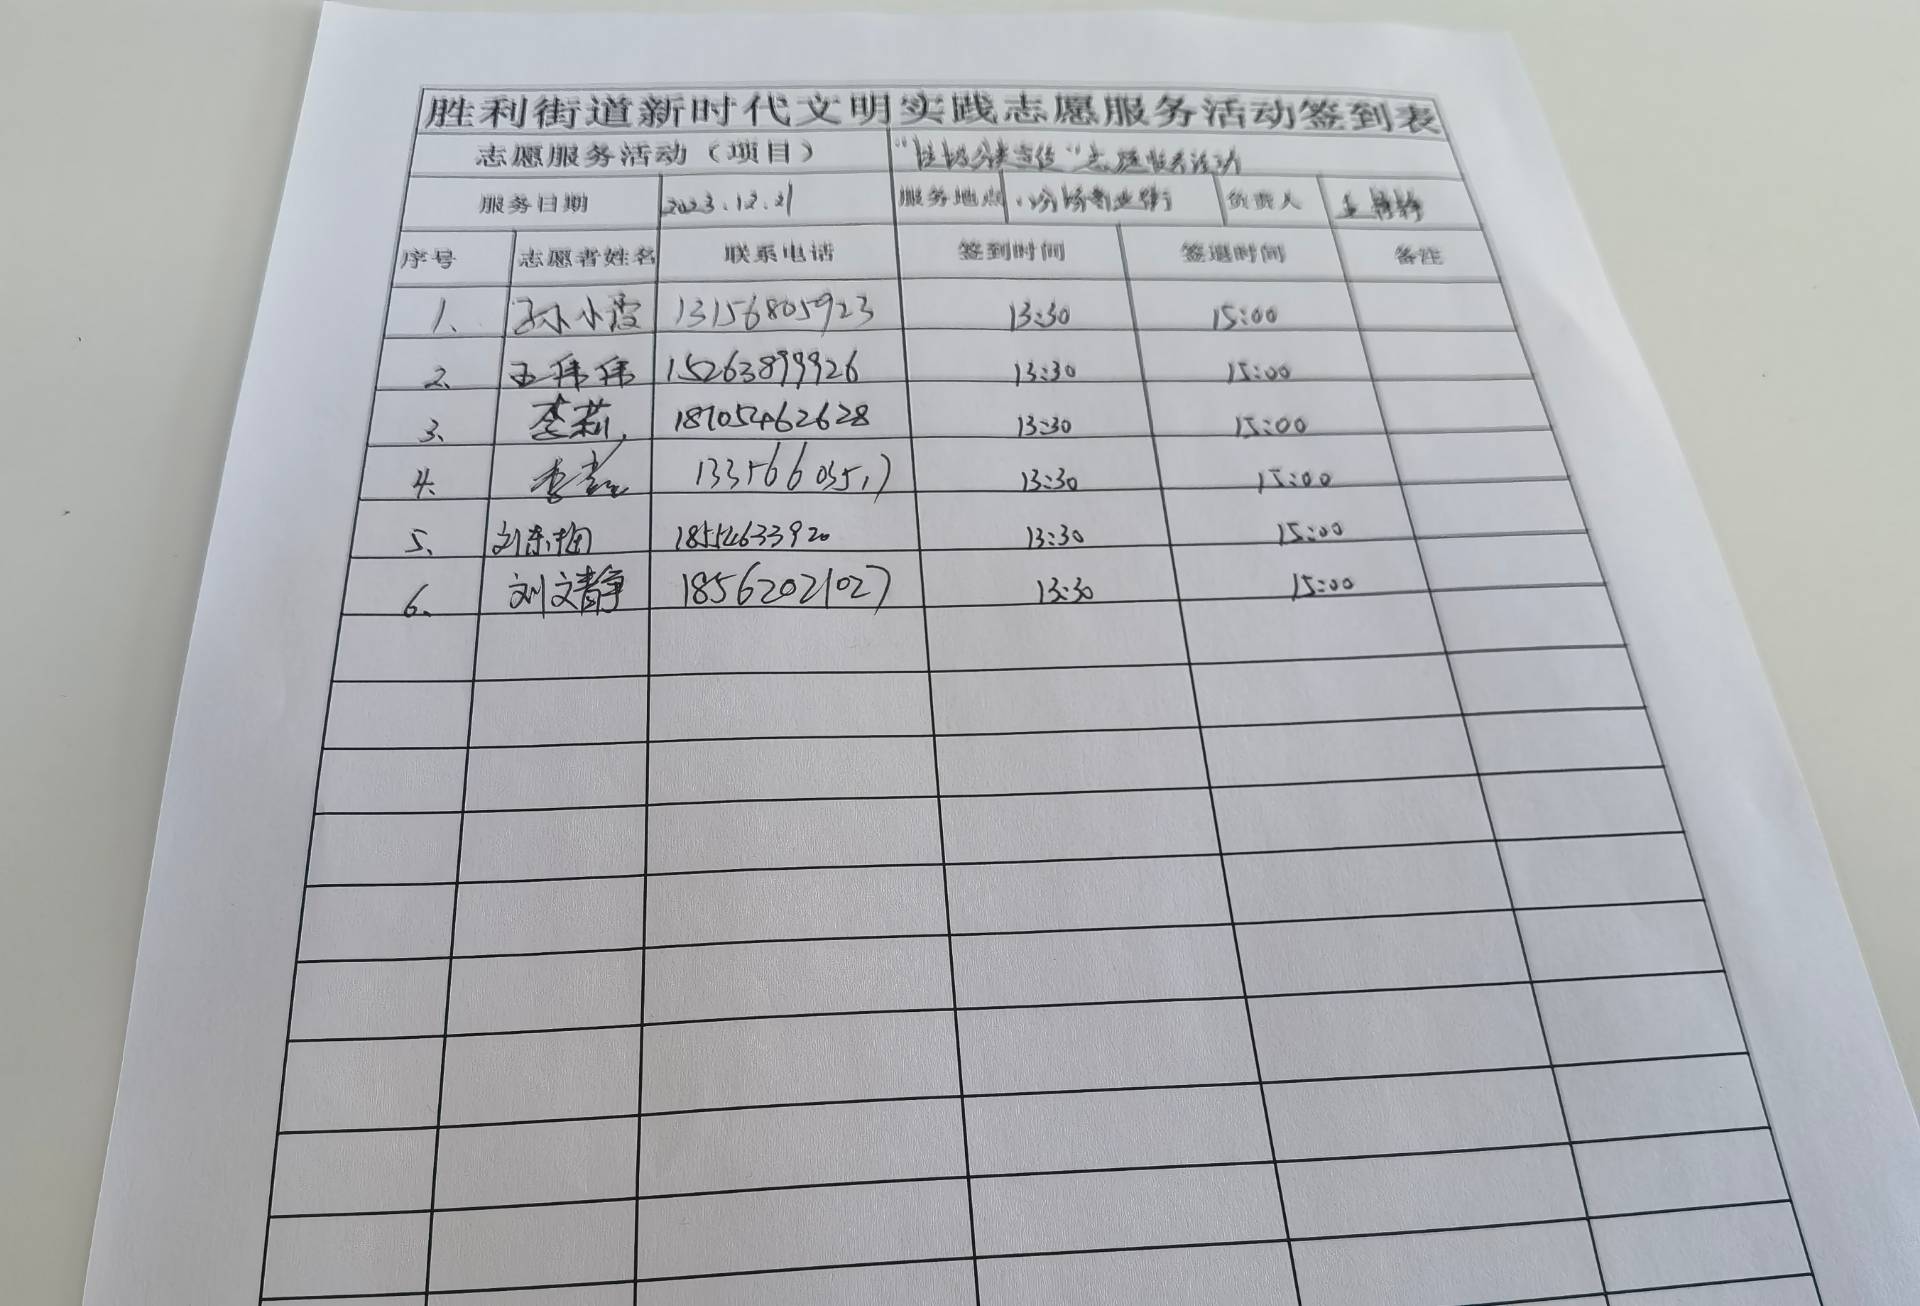 胜利街道新时代文明实践志愿服务活动签到表
志愿服务活动（项目） "垃圾分类宣传"志愿服务活动
服务日期 2023.12.21 服务地点 商业街 负责人 王
序号 志愿者姓名 联系电话 签到时间 签退时间 备注
1、 孙小霞 13156805923 13:30 15:00
2、 王伟伟 15263899926 13:30 15:00
3、 李莉 18705462628 13:30 15:00
4、 李 13:30 15:00
5、 刘东梅 18554633920 13:30 15:00
6、 刘文静 18562021027 13:30 15:00